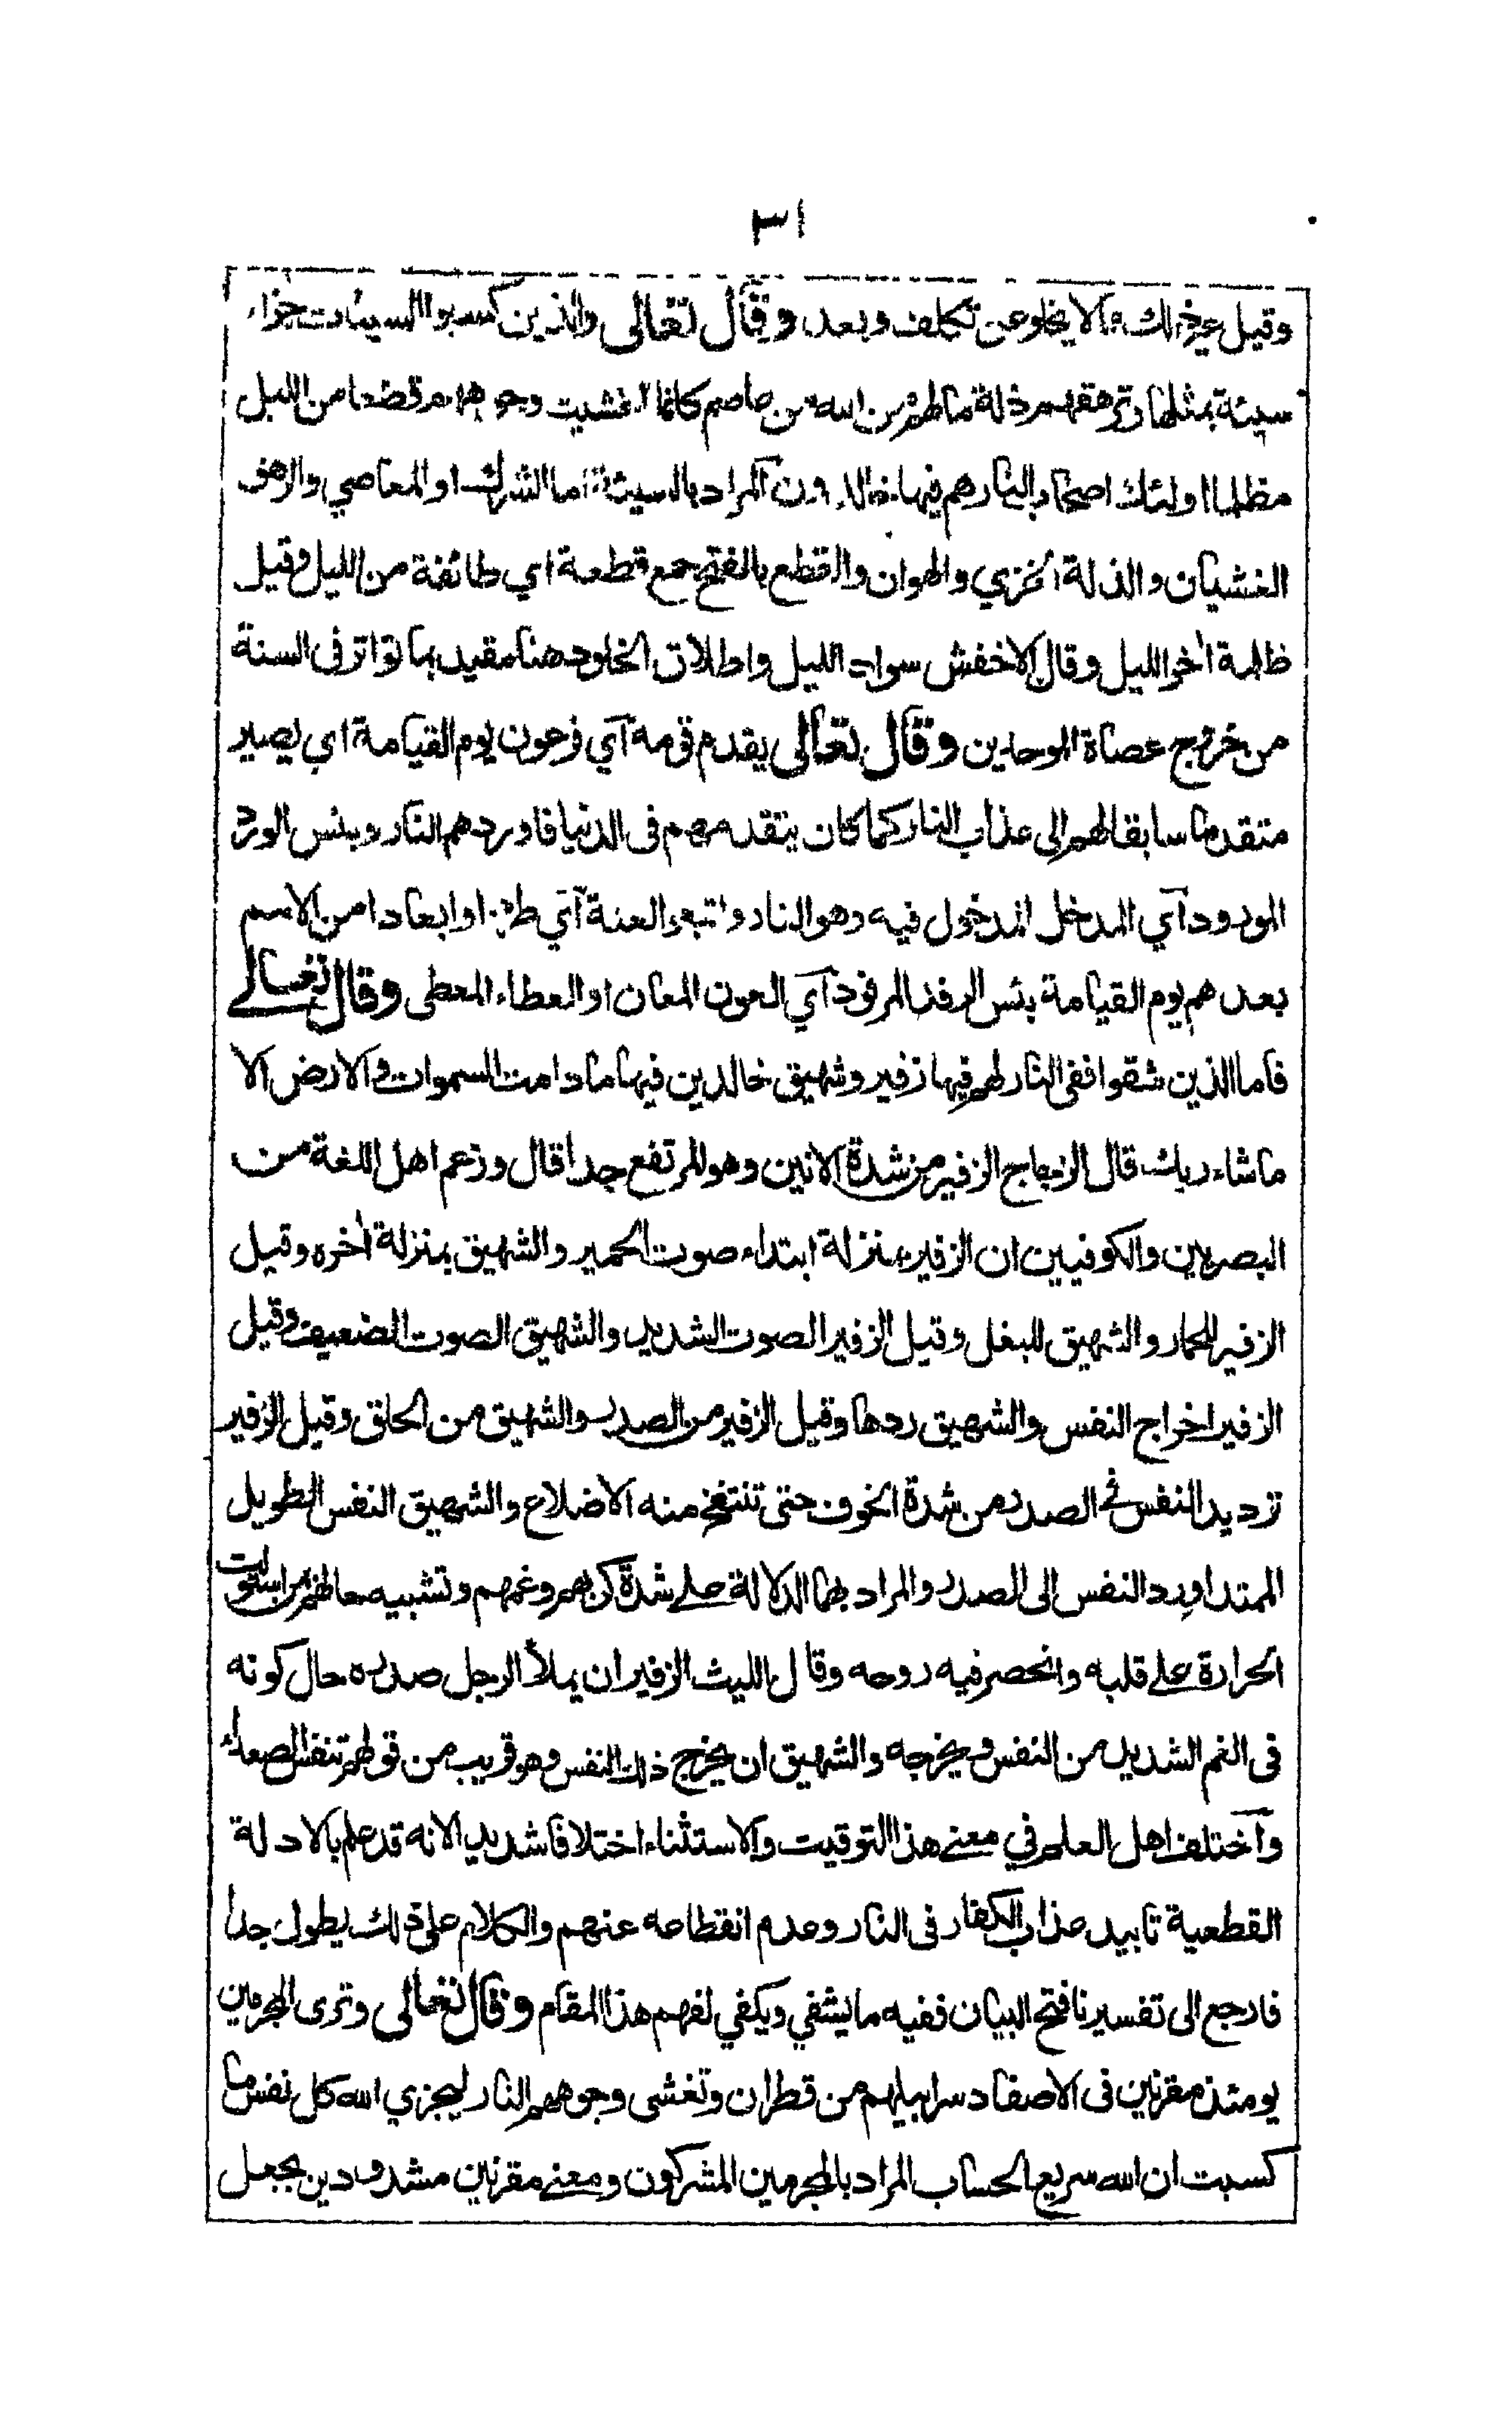 ٣١
وقيل غير ذلك مما لا يخلو عن تكلف وبعد وقال تعالى والذين كسبوا السيئات جزاء
سيئة بمثلها وترهقهم ذلة ما لهم من الله من عاصم كانما اغشيت وجوههم قطعا من الليل
مظلما اولئك اصحاب النار هم فيها خالدون المراد بالسيئة اما الشرك او المعاصي والرهق
الغشيان والذلة الخزي والهوان والقطع بالفتح جمع قطعة اي طائفة من الليل وقيل
ظلمة اخر الليل وقال الاخفش سواد الليل واطلاق الخلود هنا مقيد بما تواتر فى السنة
من خروج عصاة الموحدين وقال تعالى يقدم قومه آي فرعون يوم القيامة اي يصير
متقدما سابقا لهم الى عذاب النار كما كان يتقدمهم فى الدنيا فاوردهم النار وبئس الورد
المورود آي المدخل المدخول فيه وهو النار واتبعوا لعنة آي طردا وابعادا من الامم
بعدهم يوم القيامة بئس الرفد المرفود آي العون المعان او العطاء المعطى وقال تعالے
فاما الذين شقوا ففى النار لهم فيها زفير وشهيق خالدين فيها ما دامت السموات والارض الا
ما شاء ربك قال الزجاج الزفير من شدة الانين وهو المرتفع جدا قال وزعم اهل اللغة من
البصريين والكوفيين ان الزفير بمنزلة ابتداء صوت الحمير والشهيق بمنزلة اخره وقيل
الزفير للحمار والشهيق للبغل وقيل الزفير الصوت الشديد والشهيق الصوت الضعيف وقيل
الزفير اخراج النفس والشهيق ردها وقيل الزفير من الصدر والشهيق من الحلق وقيل الزفير
ترديد النفس فے الصدر من شدة الخوف حتى تنتفخ منه الاضلاع والشهيق النفس الطويل
الممتد او رد النفس الى الصدر والمراد بهما الدلالة علے شدة كربهم وغمهم وتشبيه حالهم بمن استولت
الحرارة علے قلبه وانحصر فيه روحه وقال الليث الزفير ان يملأ الرجل صدره حال كونه
فى الغم الشديد من النفس ويخرجه والشهيق ان يخرج ذلك النفس وهو قريب من قولهم تنفس الصعداء
وآختلف اهل العلم في معنے هذا التوقيت والاستثناء اختلافا شديدا لانه قد علم بالادلة
القطعية تابيد عذاب الكفار فى النار وعدم انقطاعه عنهم والكلام على ذلك يطول جدا
فارجع الى تفسيرنا فتح البيان ففيه ما يشفي ويكفي لفهم هذا المقام وقال تعالى وترى المجرمين
يومئذ مقرنين فى الاصفاد سرابيلهم من قطران وتغشى وجوههم النار ليجزي الله كل نفس ما
كسبت ان الله سريع الحساب المراد بالمجرمين المشركون ومعنے مقرنين مشدودين بجعل